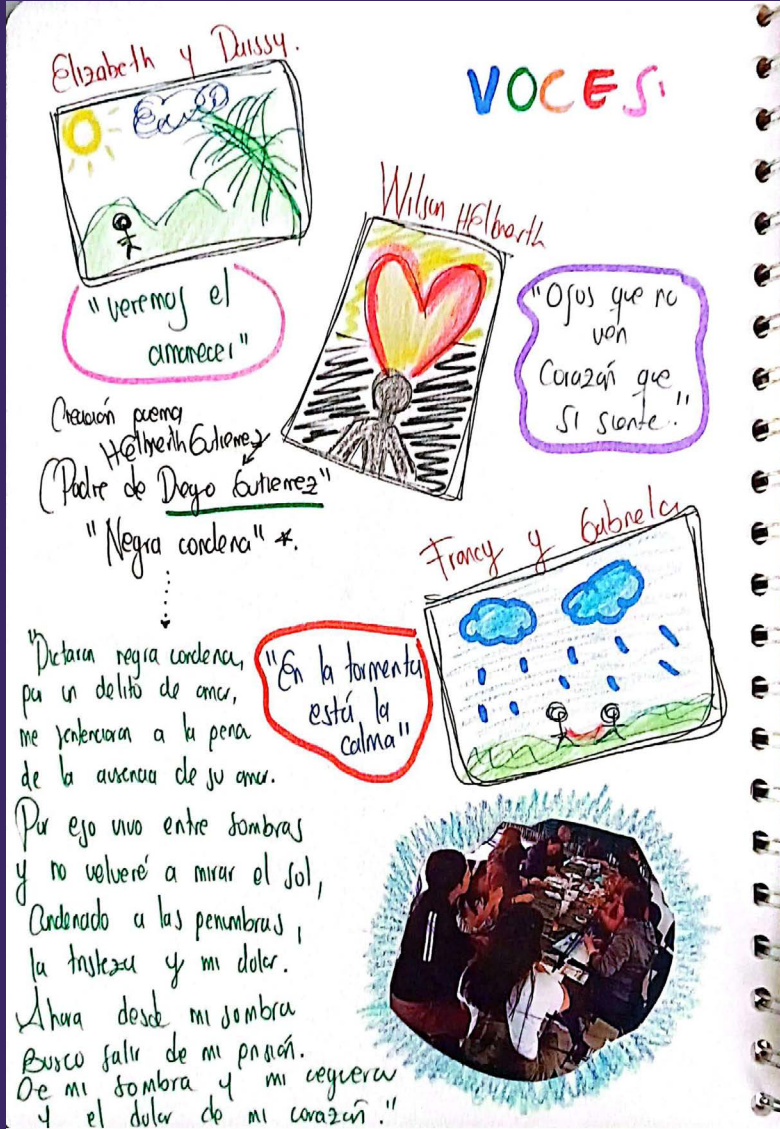 Elizabeth y Daissy.
VOCES.
"veremos el
amanecer"
Wilson Hélberth
"Ojos que no
ven
Corazón que
si siente."
Creación poema
Hélmerth Gutierrez
(Padre de Diego Gutierrez"
"Negra condena" *.
Francy y Gabriela
"En la tormenta
está la
calma"
"Dictaron negra condena,
por un delito de amor,
me sentenciaron a la pena
de la ausencia de su amor.
Por eso vivo entre sombras
y no volveré a mirar el sol,
Condenado a las penumbras,
la tristeza y mi dolor.
Ahora desde mi sombra
Busco salir de mi prisión.
De mi sombra y mi ceguera
y el dolor de mi corazón."